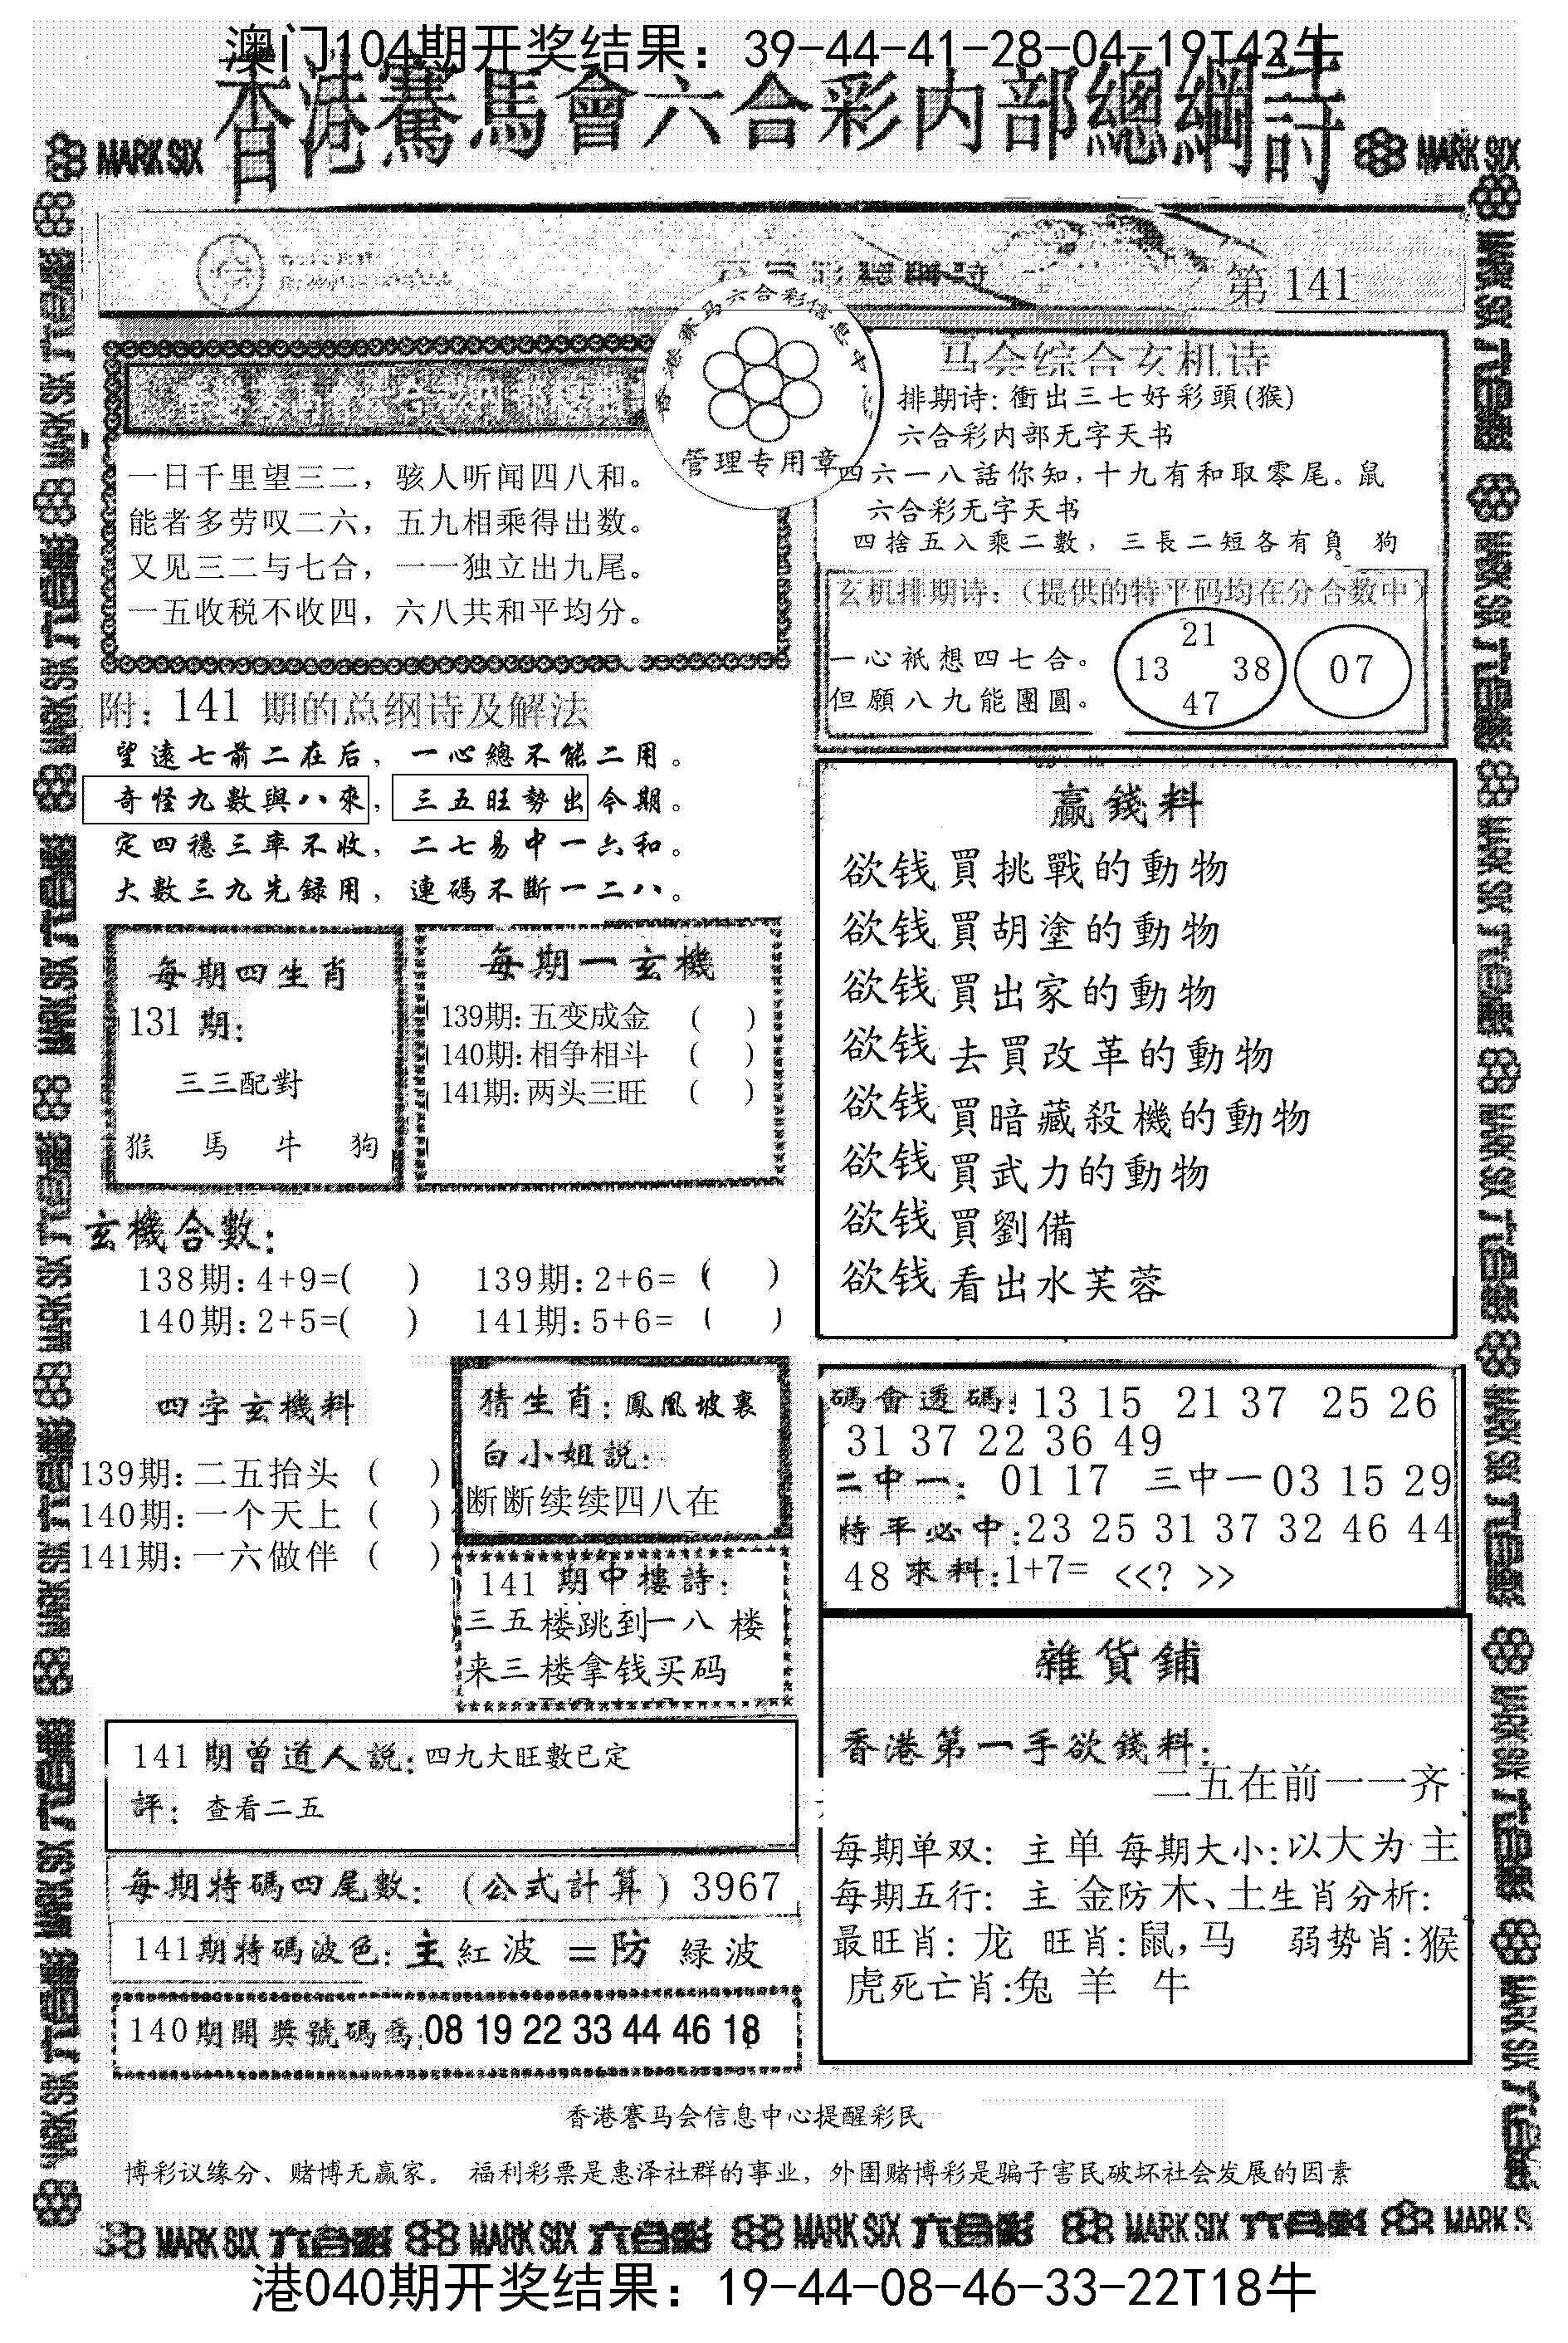 澳门104期开奖结果：39-44-41-28-04-19T42牛
香港賽馬會六合彩内部總綱詩
MARK SIX
MARK SIX
第 141
香港赛马六合彩信息中
管理专用章
一日千里望三二，骇人听闻四八和。
能者多劳叹二六，五九相乘得出数。
又见三二与七合，一一独立出九尾。
一五收税不收四，六八共和平均分。
马会综合玄机诗
排期诗：衝出三七好彩頭(猴)
六合彩内部无字天书
四六一八話你知，十九有和取零尾。鼠
六合彩无字天书
四捨五入乘二數，三長二短各有負。 狗
玄机排期诗：（提供的特平码均在分合数中）
一心祇想四七合。
但願八九能團圓。
21
13 38
47
07
附：141 期的总纲诗及解法
望遠七前二在后，一心總不能二用。
奇怪九數與八來，三五旺勢出今期。
定四穩三率不收，二七易中一六和。
大數三九先録用，連碼不斷一二八。
每期四生肖
131 期：
三三配對
猴 馬 牛 狗
每期一玄機
139期：五变成金 ( )
140期：相争相斗 ( )
141期：两头三旺 ( )
赢錢料
欲钱買挑戰的動物
欲钱買胡塗的動物
欲钱買出家的動物
欲钱去買改革的動物
欲钱買暗藏殺機的動物
欲钱買武力的動物
欲钱買劉備
欲钱看出水芙蓉
玄機合數：
138期：4+9=( ) 139期：2+6= ( )
140期：2+5=( ) 141期：5+6= ( )
四字玄機料
139期：二五抬头 ( )
140期：一个天上 ( )
141期：一六做伴 ( )
猜生肖：鳳凰坡裏
白小姐説：
断断续续四八在
141 期中樓詩：
三五楼跳到一八 楼
来三楼拿钱买码
碼會透碼：13 15 21 37 25 26
31 37 22 36 49
二中一：01 17 三中一03 15 29
特平必中：23 25 31 37 32 46 44
48 來料：1+7= <<? >>
雜貨鋪
香港第一手欲錢料：
二五在前一一齐
每期单双：主单 每期大小：以大为主
每期五行：主 金防木、土生肖分析：
最旺肖：龙 旺肖：鼠，马 弱势肖：猴
虎死亡肖：兔 羊 牛
141期曾道人説：四九大旺數已定
評：查看二五
每期特碼四尾數：(公式計算) 3967
141期特碼波色：主紅波 =防 緑波
140期開獎號碼爲：08 19 22 33 44 46 18
香港赛马会信息中心提醒彩民
博彩议缘分、赌博无赢家。 福利彩票是惠泽社群的事业，外围赌博彩是骗子害民破坏社会发展的因素
MARK SIX 六合彩 MARK SIX 六合彩 MARK SIX 六合彩 MARK SIX 六合彩 MARK S
港040期开奖结果：19-44-08-46-33-22T18牛